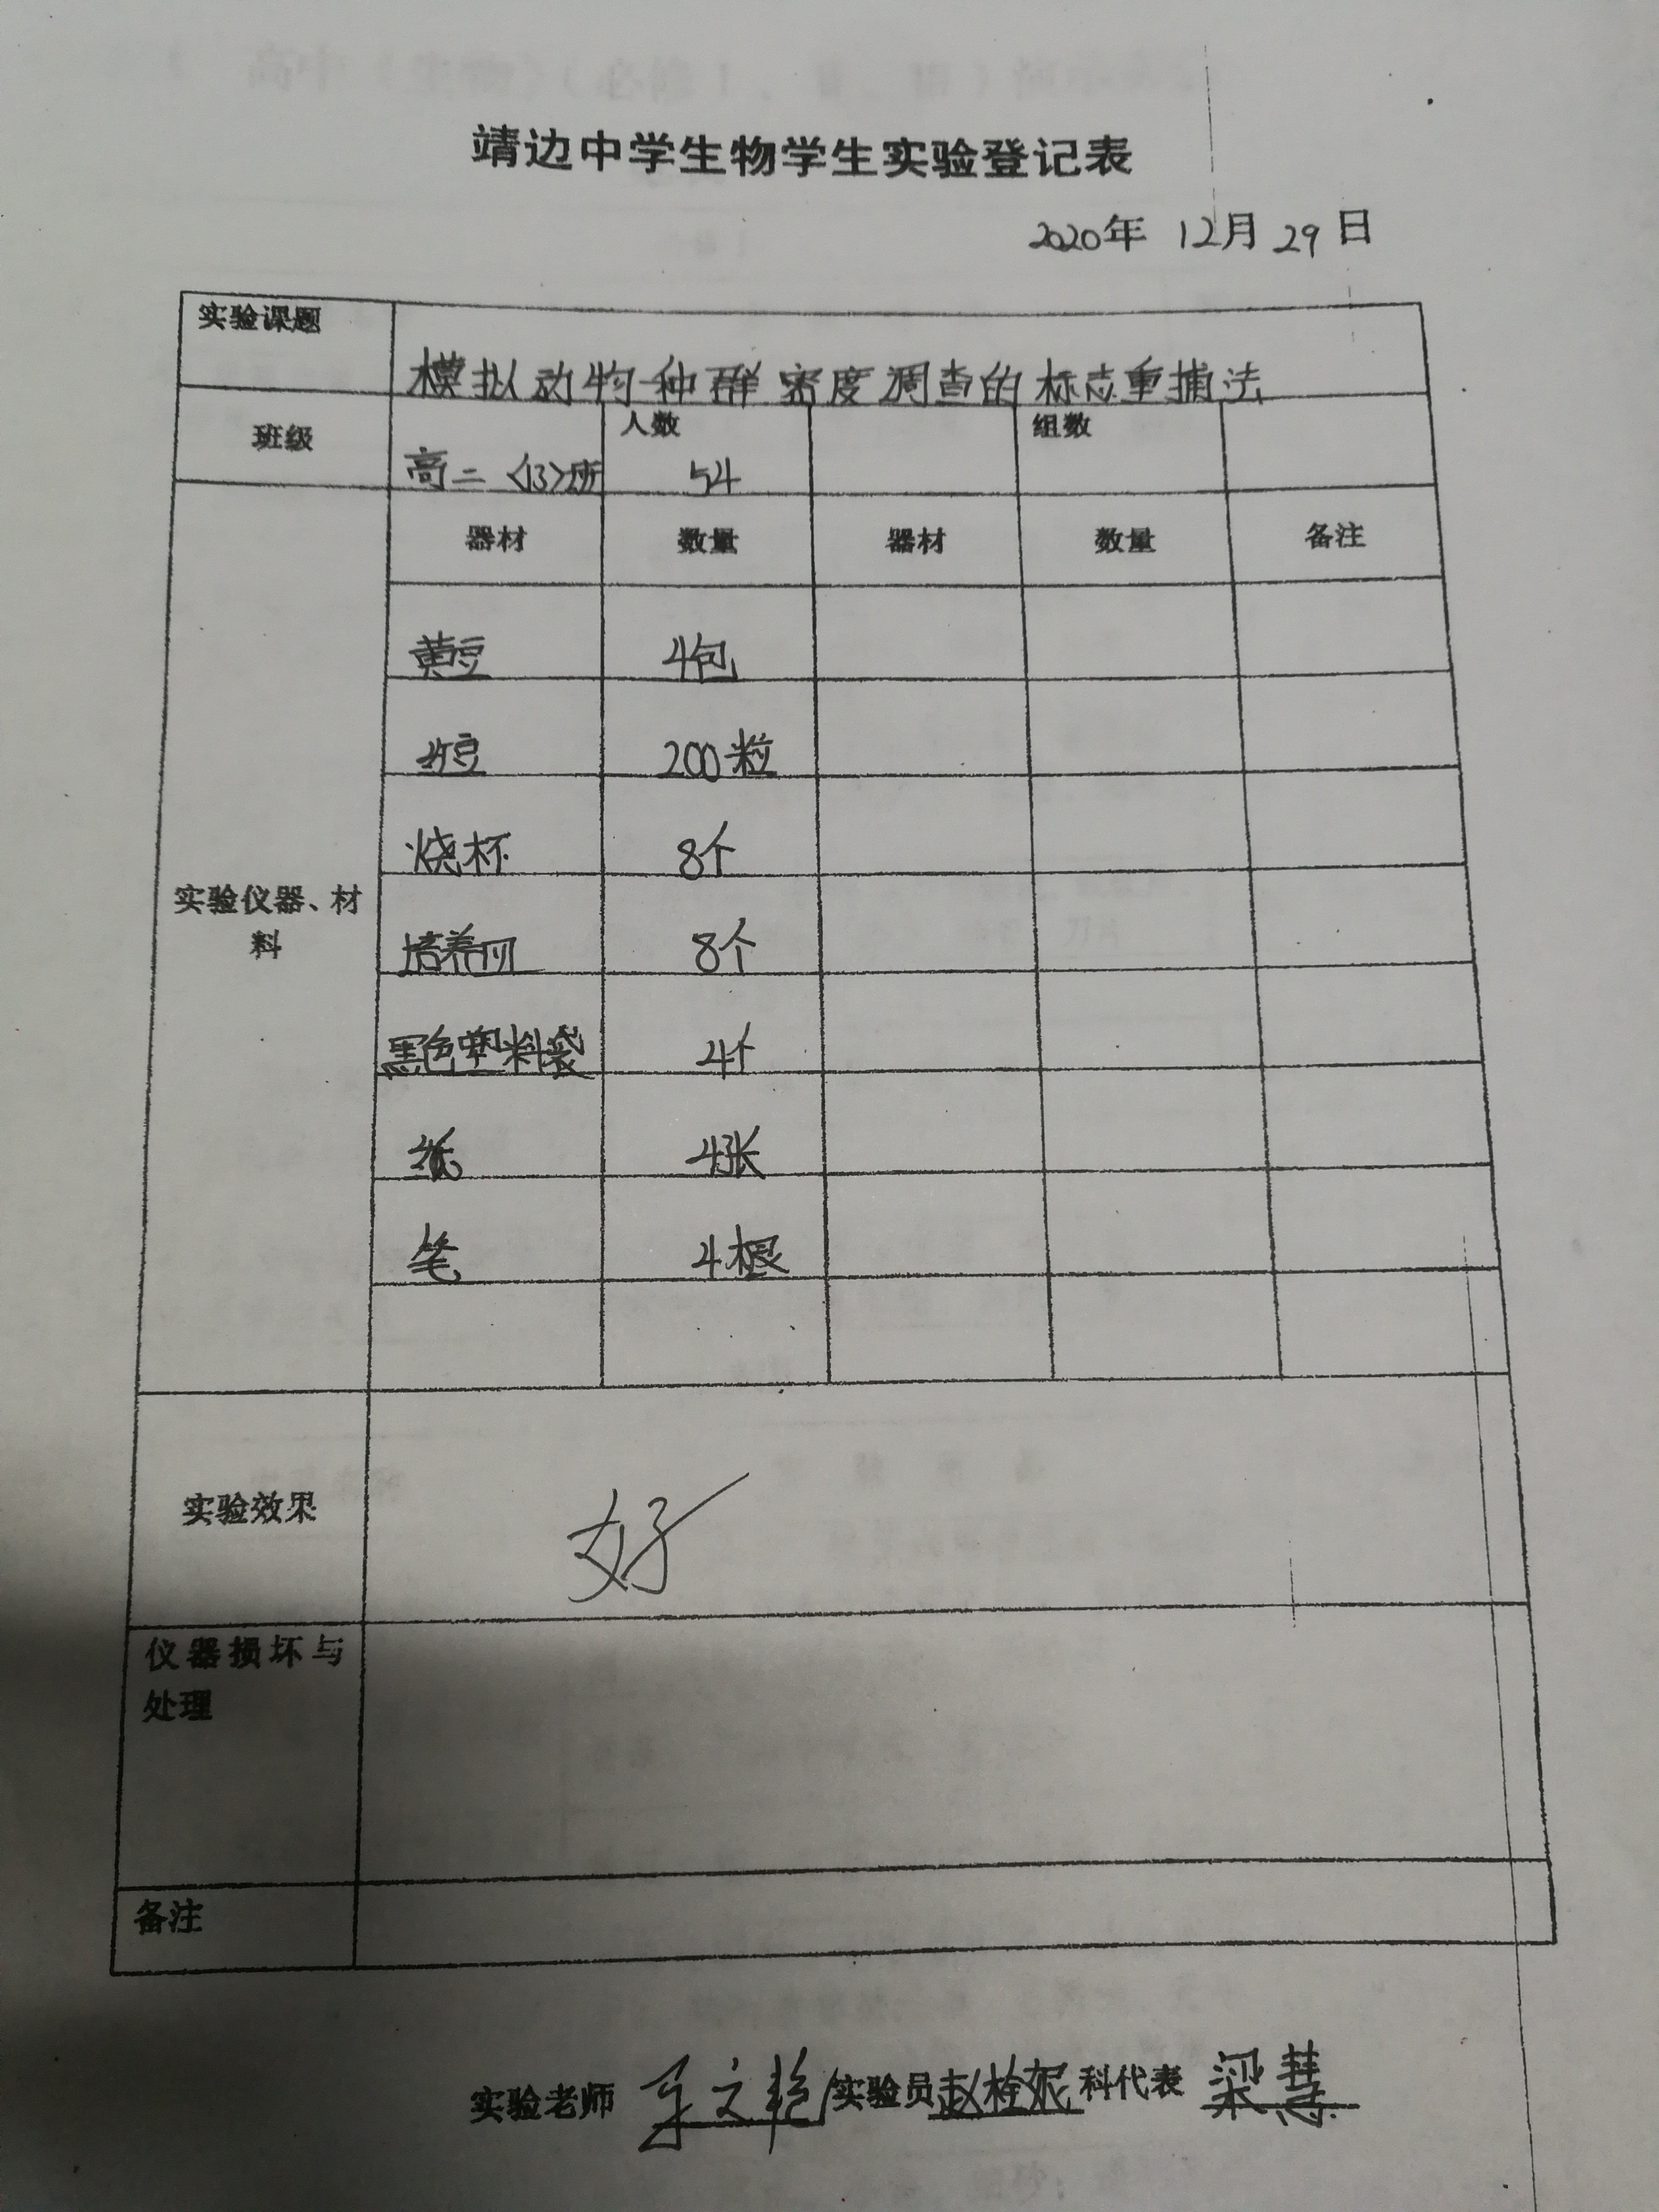 靖边中学生物学生实验登记表
2020年 12月 29日
实验课题
模拟动物种群密度调查的标志重捕法
班级 高二〈13〉班 人数 54 组数
器材 数量 器材 数量 备注
黄豆 4包
豆 200粒
烧杯 8个
实验仪器、材料
培养皿 8个
黑色塑料袋 4个
纸 4张
笔 4根
实验效果 好
仪器损坏与
处理
备注
实验老师 文艳 实验员 赵栓妮 科代表 梁慧